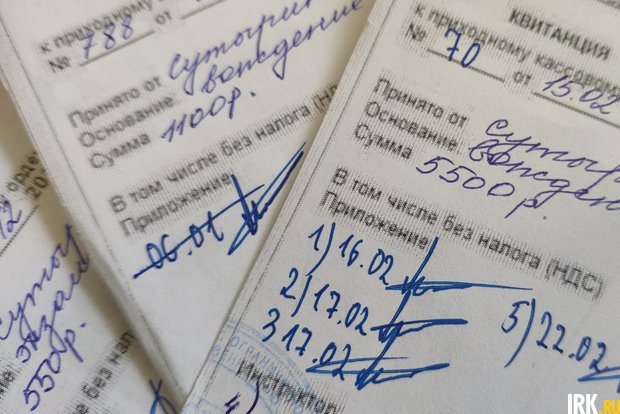 к приходному
№ 788 от
Принято от Сутырин
Основание: вождение
Сумма 1100р.
В том числе без налога (НД
Приложение
06.01
КВИТАНЦИЯ
к приходному кассово
№ 70 от 15.02
Принято от Сутыр
Основание: вождени
Сумма 5500р.
В том числе без налога (НДС)
Приложение
1) 16.02
2) 17.02
3 17.02
5) 22.02
Инструктор
4)
орде
12
Сутыр
экзам
550р.
без нал
IRK.RU